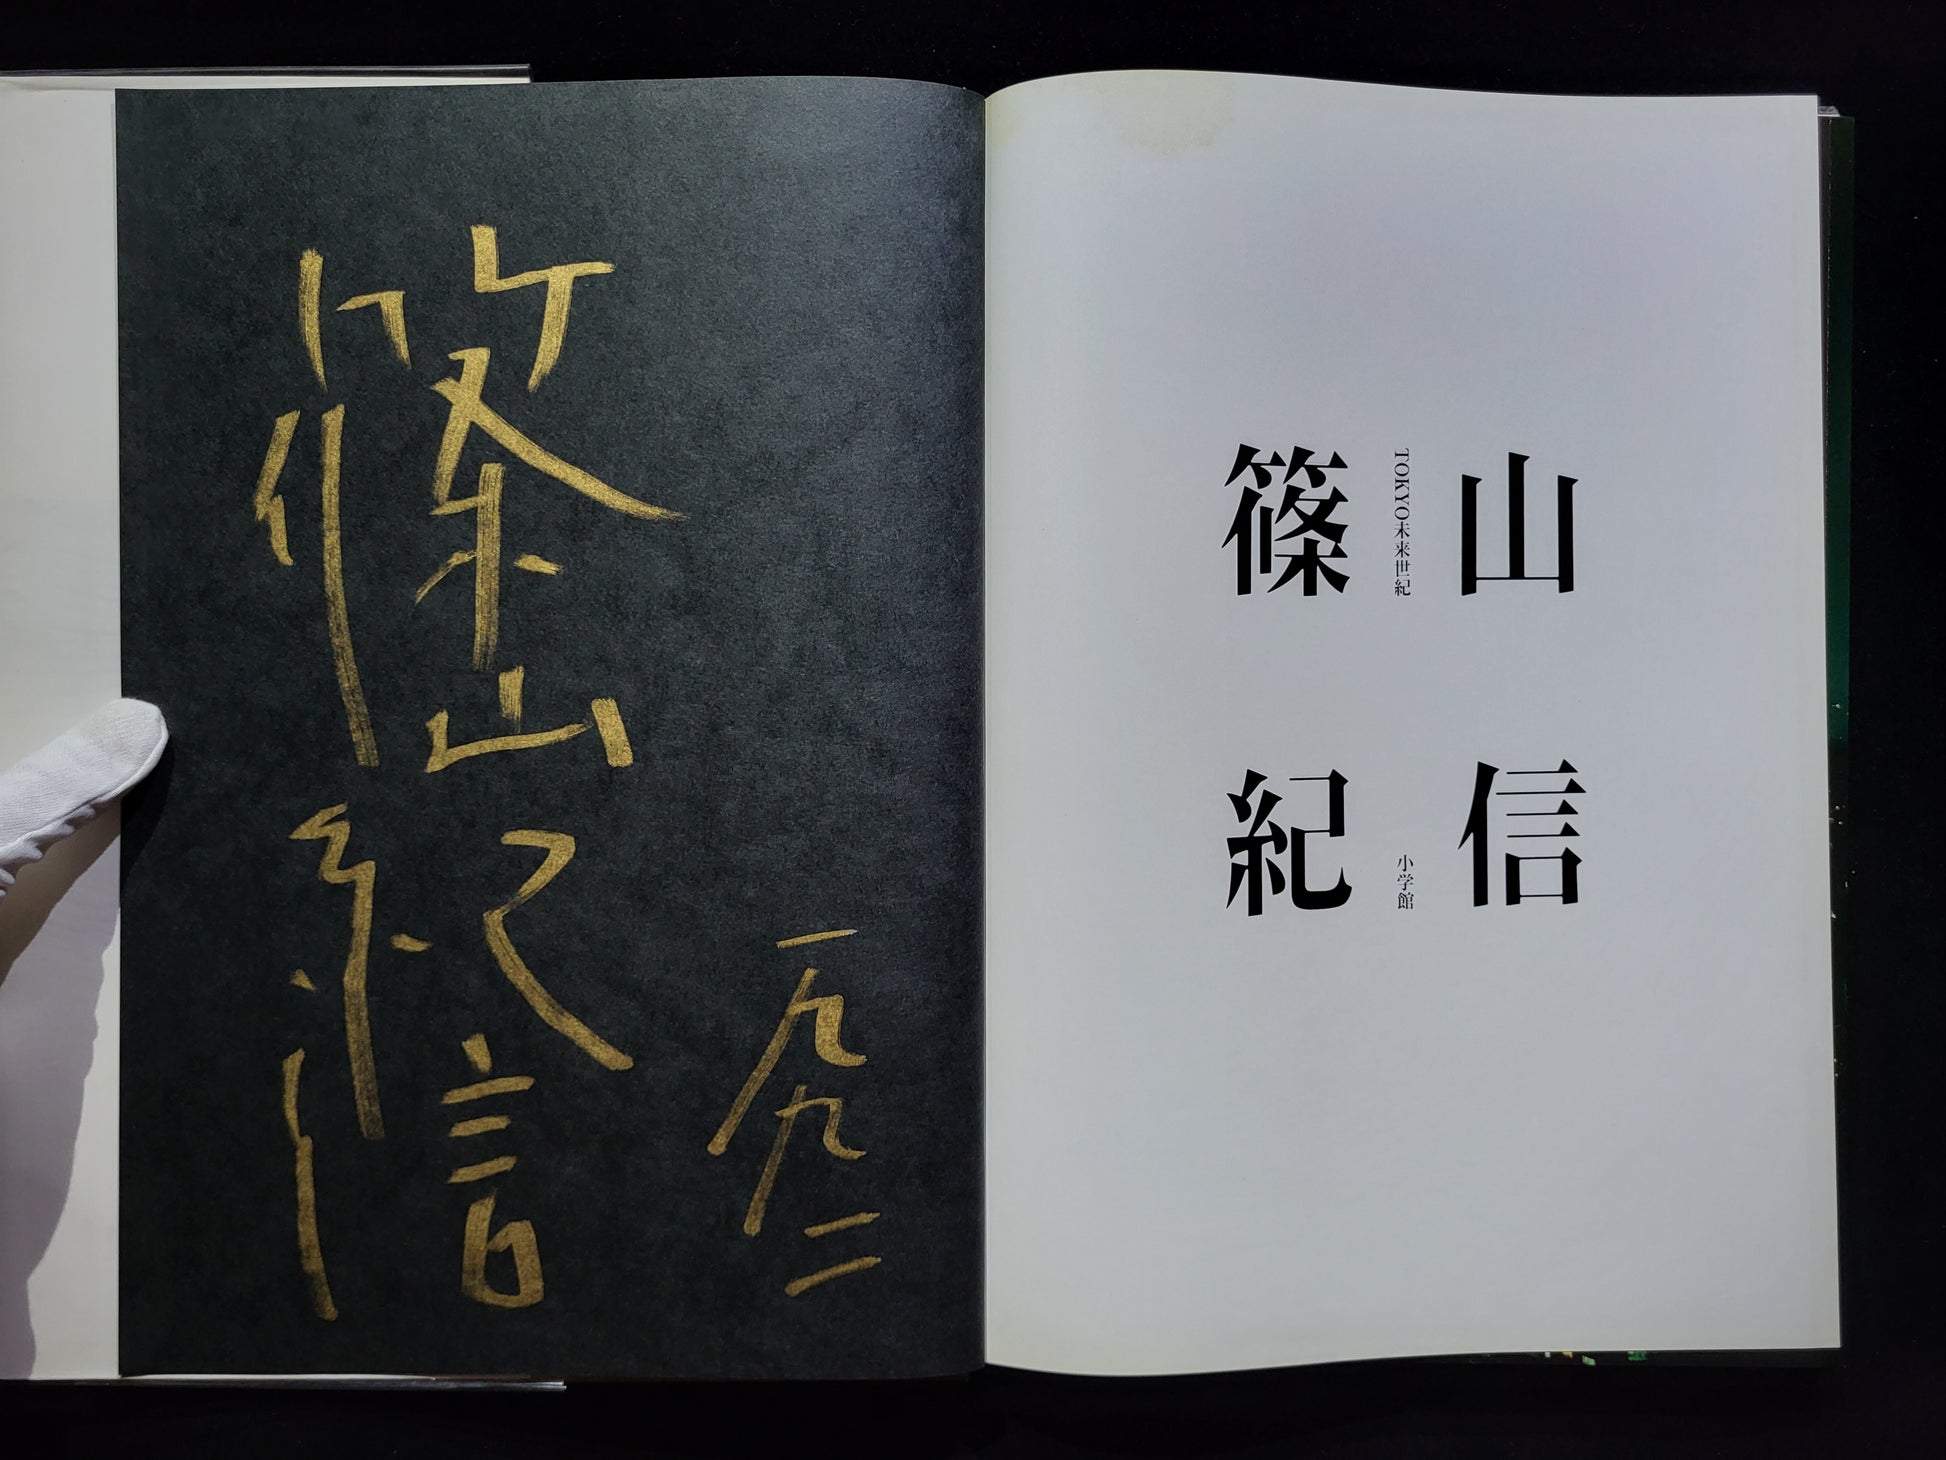 篠山紀信
一九九二
篠山
TOKYO未来世紀
紀信
小学館